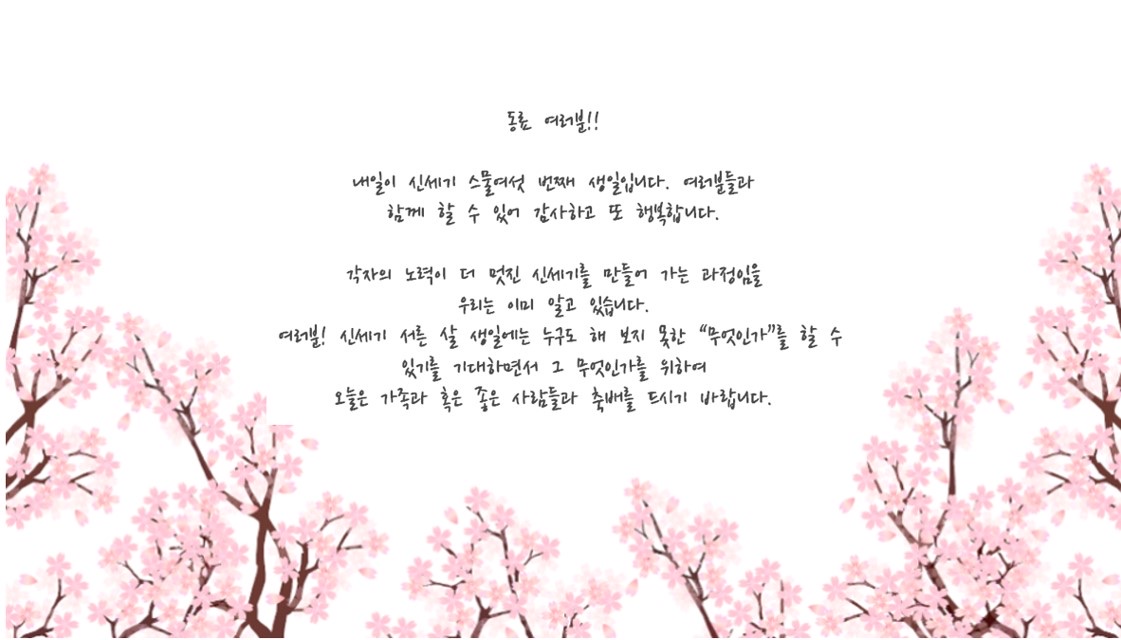 동료 여러분!!
내일이 신세기 스물여섯 번째 생일입니다. 여러분들과
함께 할 수 있어 감사하고 또 행복합니다.
각자의 노력이 더 멋진 신세기를 만들어 가는 과정임을
우리는 이미 알고 있습니다.
여러분! 신세기 서른 살 생일에는 누구도 해 보지 못한 “무엇인가”를 할 수
있기를 기대하면서 그 무엇인가를 위하여
오늘은 가족과 혹은 좋은 사람들과 축배를 드시기 바랍니다.